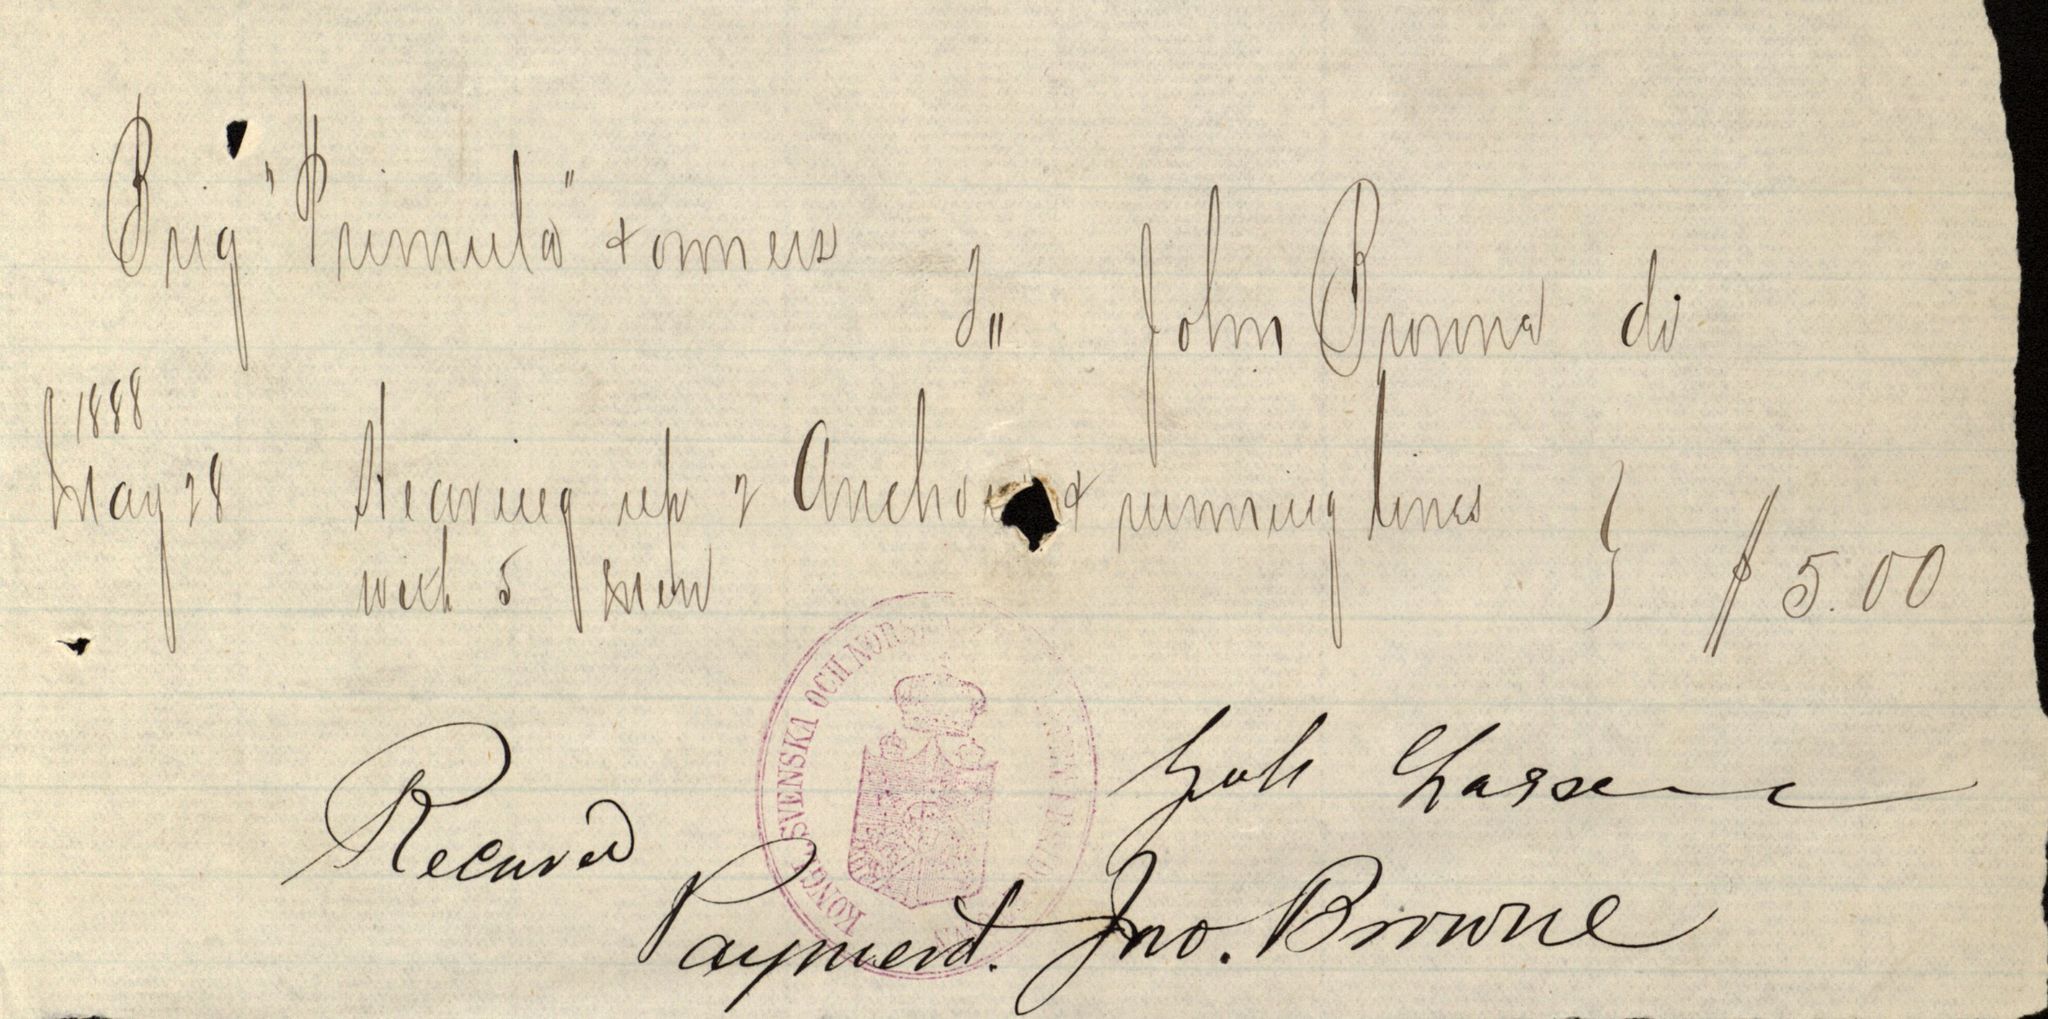 Brig "Primula" & owners
To John Browne dr
1888
May 28 Heaving up 2 Anchors & running lines } $ 5.00
with 5 men
Larsen
Received
Payment. Jno. Browne
KONGL. SVENSKA OCH NORSKA